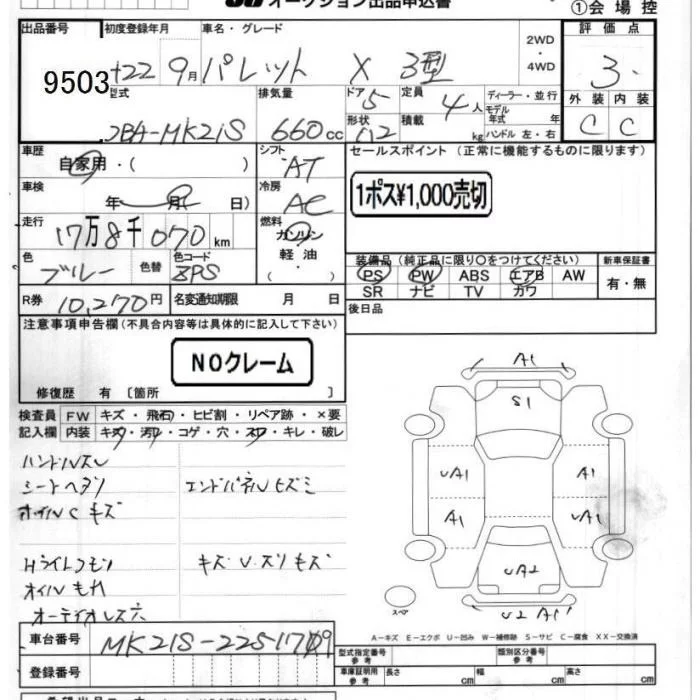 オークション出品申込書
①会場控
出品番号 初度登録年月 車名・グレード 2WD・4WD 評価点
9503 22 9月 パレット X 3型 3.
型式 排気量 ドア 5 定員 4人 ディーラー・並行 外装 内装
モデル年式 年
DBA-MK21S 660cc 形状 積載 kg ハンドル 左・右 C C
車歴 自家用・( ) シフト AT セールスポイント (正常に機能するものに限ります)
車検 年 月 日) 冷房 AC 1ポス¥1,000売切
走行 17万8千070km 燃料 ガソリン
軽油・( )
色 ブルー 色替 色コード ZPS
装備品(純正品に限り○をつけてください) 新車保証書
PS PW ABS エアB AW 有・無
SR ナビ TV カワ
R券 10,270円 名変通知期限 月 日 後日品
注意事項申告欄(不具合内容等は具体的に記入して下さい)
NOクレーム
修復歴 有 〔箇所 〕
検査員記入欄 FW キズ・飛石・ヒビ割・リペア跡・×要
内装 キズ・汚れ・コゲ・穴・スレ・キレ・破レ
ハンドルスレ
シートヘタリ エンドパネルキズミ
ホイルCキズ
Hライトクモリ キズU.スリキズ
オイルもれ
オーディオレス穴
A1
S1
UA1 A1
A1 UA1
UA2
スペア U2 A1
A-キズ E-エクボ U-凹み W-補修跡 S-サビ C-腐食 XX-交換済
車台番号 MK21S-2251709
登録番号
型式指定番号 参考 類別区分番号 参考
車庫証明用 参考 長さ cm 幅 cm 高さ cm